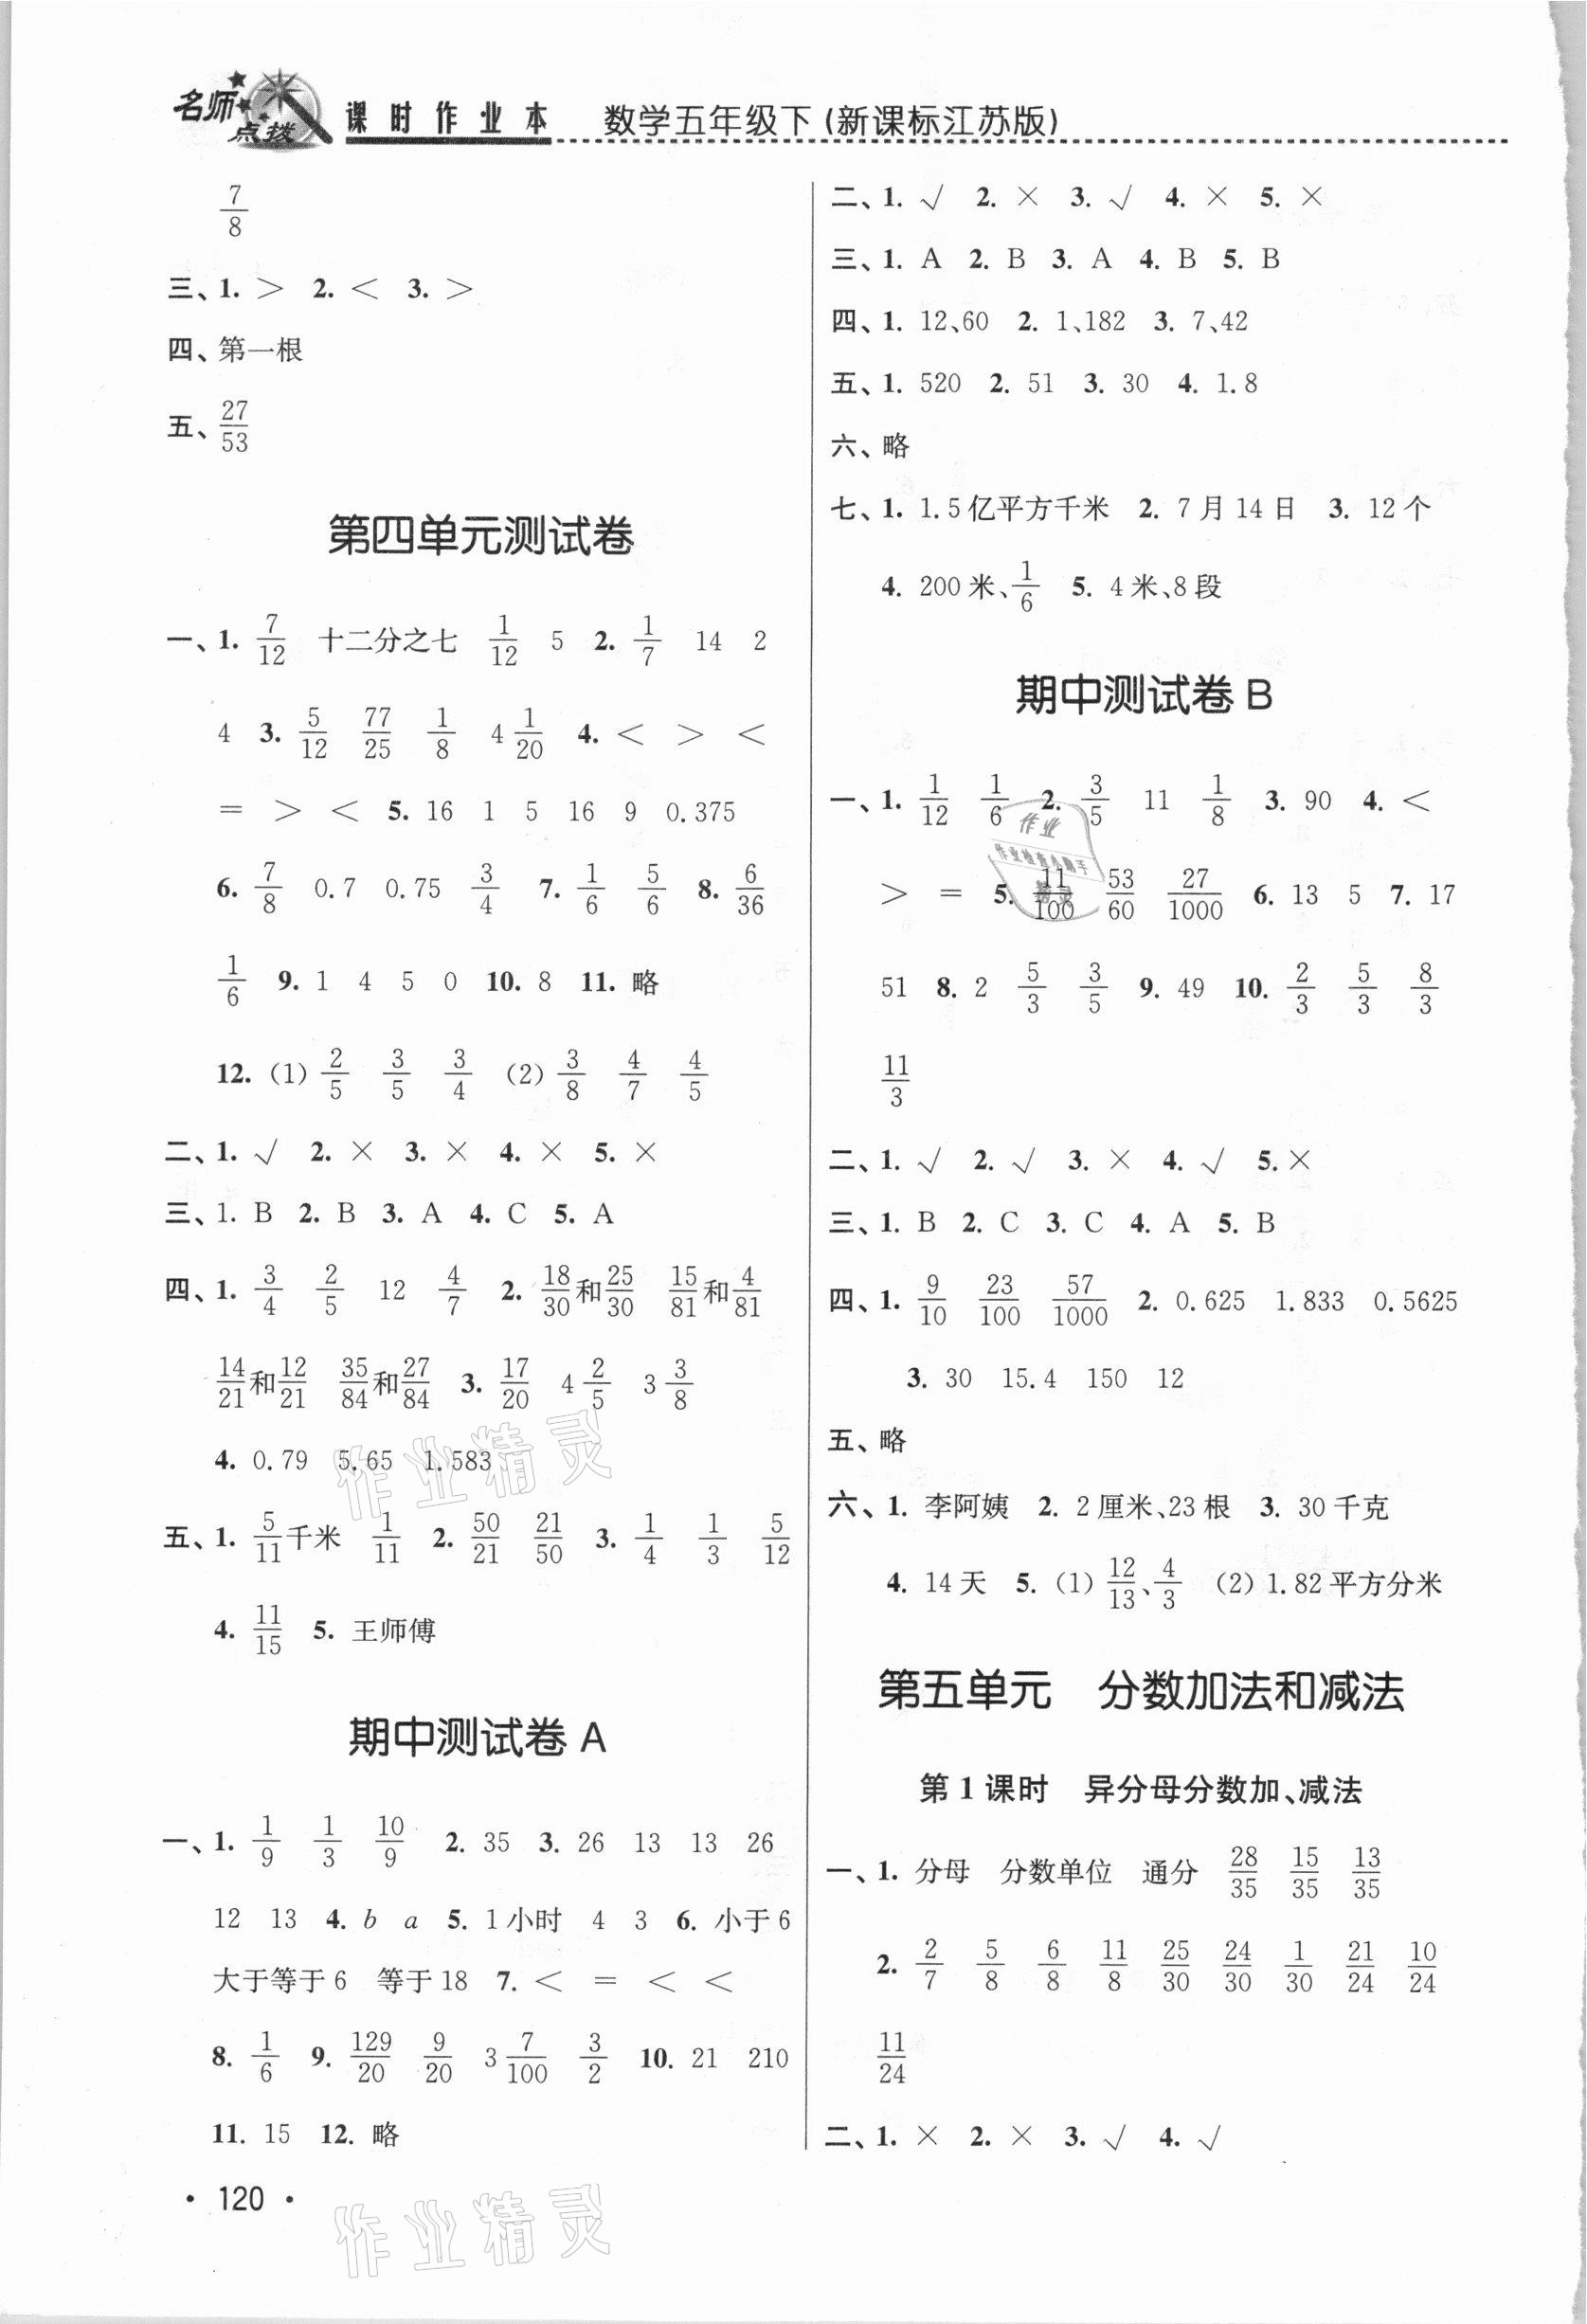 名师点拨 课时作业本 数学五年级下(新课标江苏版)
7/8
三、1. > 2. < 3. >
四、第一根
五、27/53
第四单元测试卷
一、1. 7/12 十二分之七 1/12 5 2. 1/7 14 2
4 3. 5/12 77/25 1/8 4 1/20 4. < > <
= > < 5. 16 1 5 16 9 0.375
6. 7/8 0.7 0.75 3/4 7. 1/6 5/6 8. 6/36
1/6 9. 1 4 5 0 10. 8 11. 略
12. (1) 2/5 3/5 3/4 (2) 3/8 4/7 4/5
二、1. √ 2. × 3. × 4. × 5. ×
三、1. B 2. B 3. A 4. C 5. A
四、1. 3/4 2/5 12 4/7 2. 18/30和25/30 15/81和4/81
14/21和12/21 35/84和27/84 3. 17/20 4 2/5 3 3/8
4. 0.79 5.65 1.583
五、1. 5/11千米 1/11 2. 50/21 21/50 3. 1/4 1/3 5/12
4. 11/15 5. 王师傅
期中测试卷 A
一、1. 1/9 1/3 10/9 2. 35 3. 26 13 13 26
12 13 4. b a 5. 1小时 4 3 6. 小于6
大于等于6 等于18 7. < = < <
8. 1/6 9. 129/20 9/20 3 7/100 3/2 10. 21 210
11. 15 12. 略
二、1. √ 2. × 3. √ 4. × 5. ×
三、1. A 2. B 3. A 4. B 5. B
四、1. 12、60 2. 1、182 3. 7、42
五、1. 520 2. 51 3. 30 4. 1.8
六、略
七、1. 1.5亿平方千米 2. 7月14日 3. 12个
4. 200米、1/6 5. 4米、8段
期中测试卷 B
一、1. 1/12 1/6 2. 3/5 11 1/8 3. 90 4. <
> = 5. 11/100 53/60 27/1000 6. 13 5 7. 17
51 8. 2 5/3 3/5 9. 49 10. 2/3 5/3 8/3
11/3
二、1. √ 2. √ 3. × 4. √ 5. ×
三、1. B 2. C 3. C 4. A 5. B
四、1. 9/10 23/100 57/1000 2. 0.625 1.833 0.5625
3. 30 15.4 150 12
五、略
六、1. 李阿姨 2. 2厘米、23根 3. 30千克
4. 14天 5. (1) 12/13、4/3 (2) 1.82平方分米
第五单元 分数加法和减法
第1课时 异分母分数加、减法
一、1. 分母 分数单位 通分 28/35 15/35 13/35
2. 2/7 5/8 6/8 11/8 25/30 24/30 1/30 21/24 10/24
11/24
二、1. × 2. × 3. √ 4. √
· 120 ·
作业
作业检查小助手
精灵
作业精灵
作业精灵